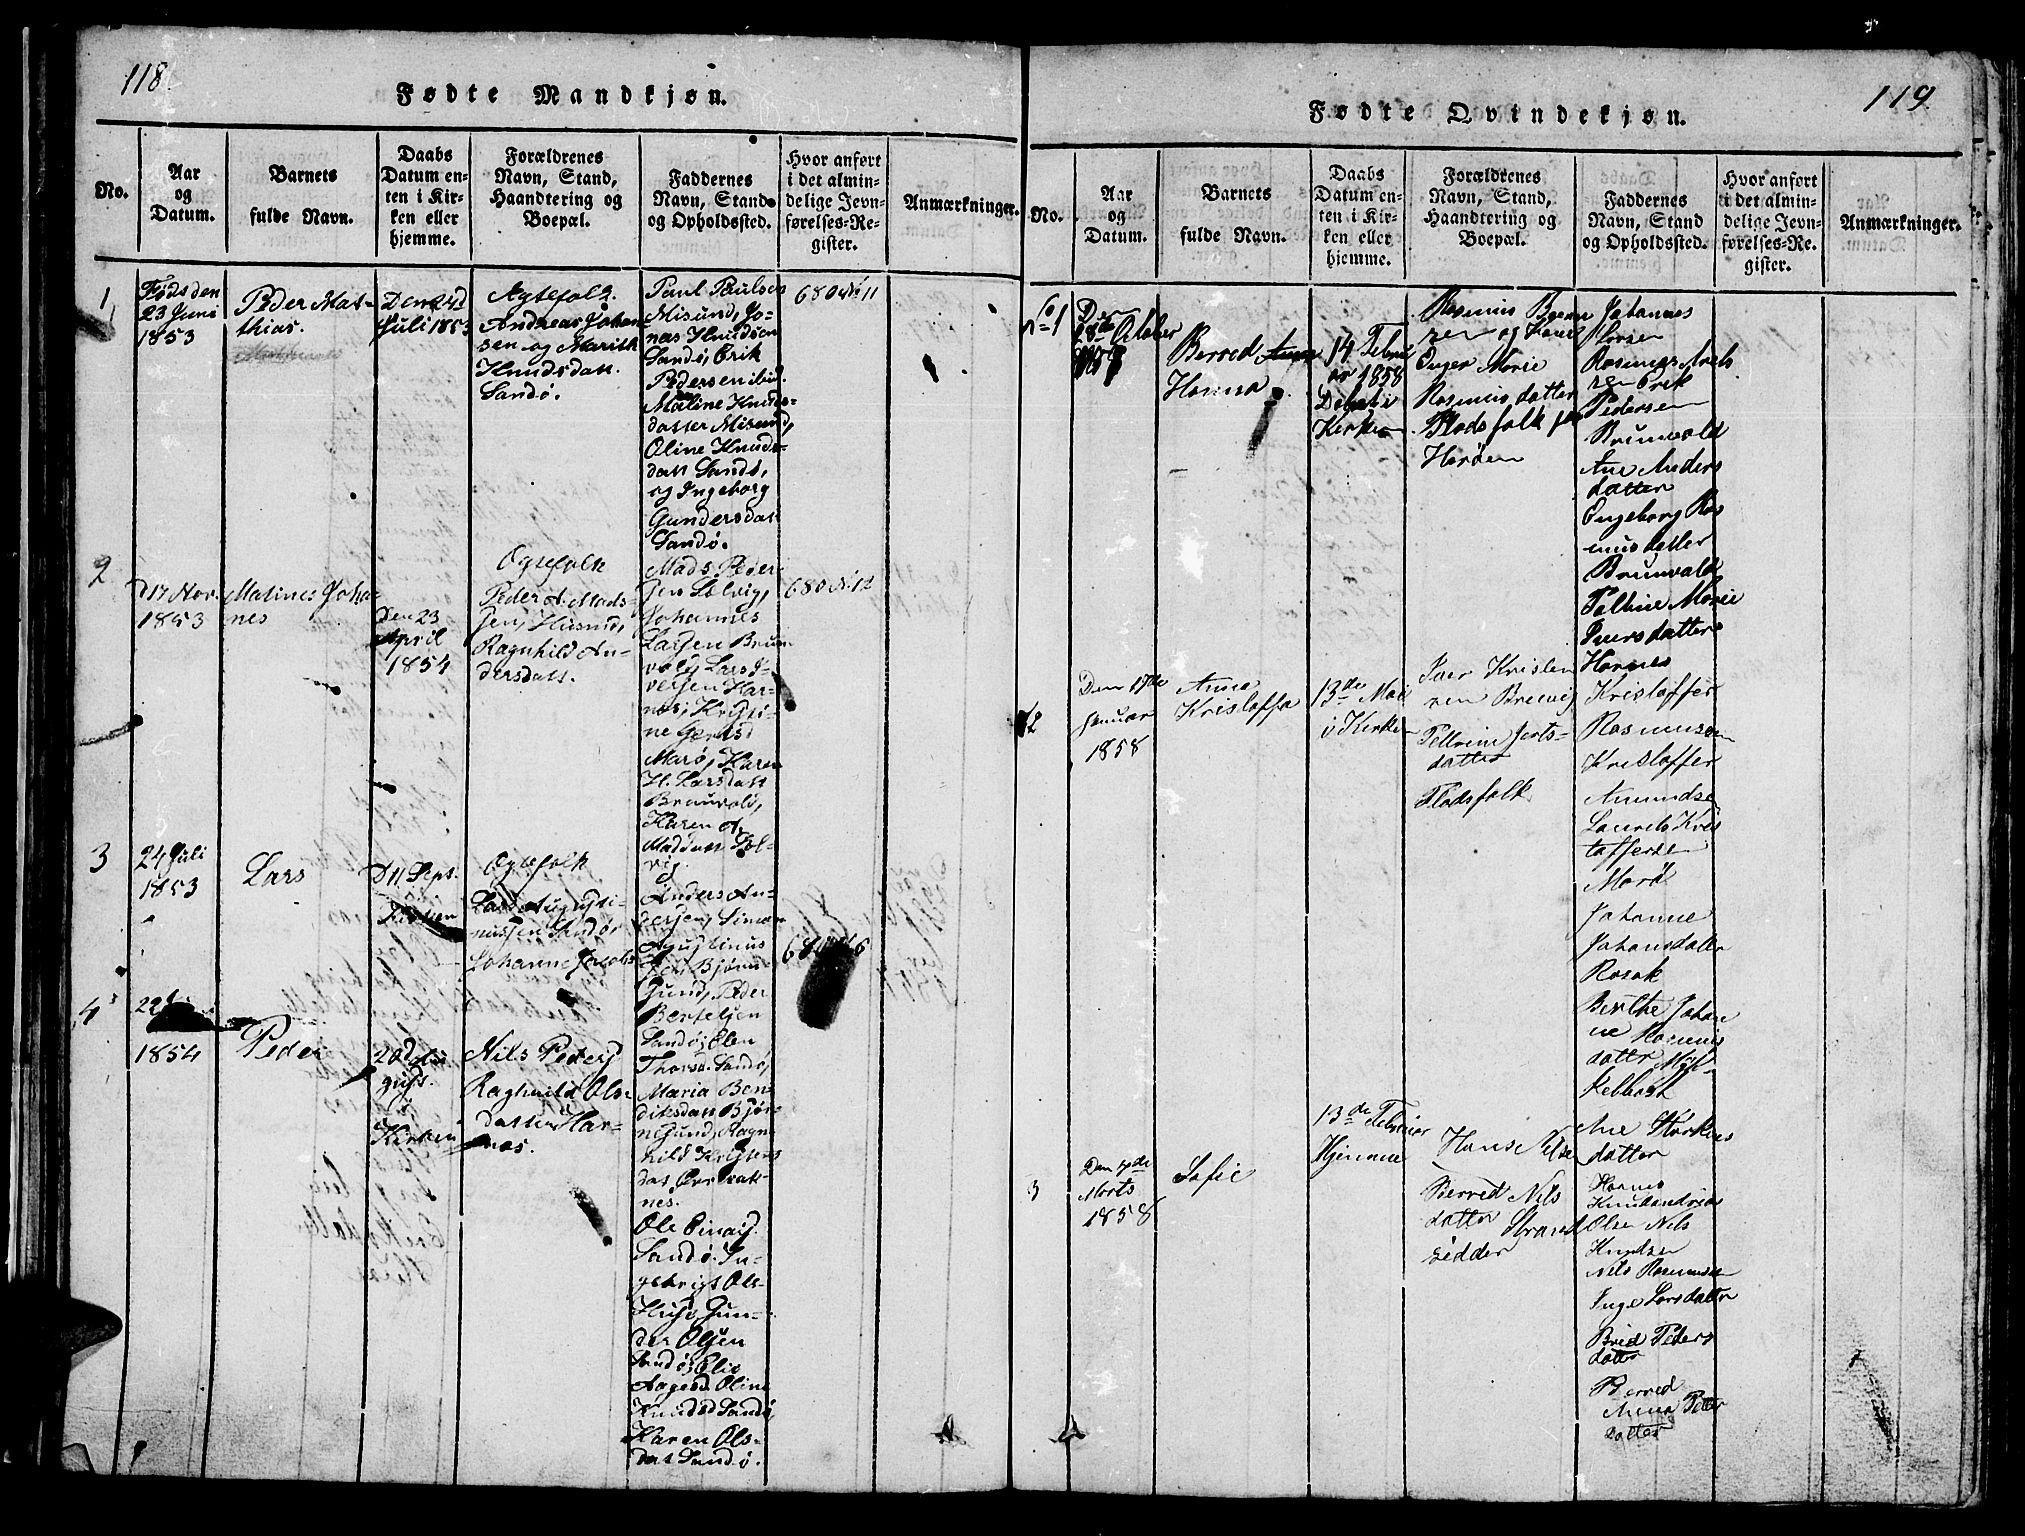 118.
Fødte Mandkjøn.
No.
Aar
og
Datum.
Barnets
fulde Navn.
Daabs
Datum en-
ten i Kir-
ken eller
hjemme.
Forældrenes
Navn, Stand,
Haandtering og
Boepæl.
Faddernes
Navn, Stand
og Opholdssted.
Hvor anført
i det almin-
delige Jevn-
førelses-Re-
gister.
Anmærkninger.
1
Føds den
23 Juni
1853
Peder Mat-
thias.
Den 24d
Juli 1853
Ægtefolk.
Andreas Johan-
sen og Marith
Knudsdatt.
Sandö.
Paul Paulsen
Misund, Jo-
nas Knudsen
Sandö, Erik
Pedersen ibid.
Maline Knuds-
datter Misund,
Oline Knuds-
datt Sandö,
og Ingeborg
Gundersdatt
Sandö.
680 No 11
2
d 17 Nov.
1853
Matines Joha-
nes
Den 23
April
1854
Ægtefolk
Peder A. Mads-
sen, Husmd,
Ragnhild An-
dersdatt.
Mads Peder-
sen Solvig,
Johannes
Larsen Brun
vold, Lars I-
versen Har-
nes, Kristi-
ne Gertsd
Marö, Karen
H. Larsdatt
Brunvold,
Karen A.
Madsdatt Sol-
vig.
680 N. 12
3
24 Juli
1853
Lars
D 11 Sept.
Kirken
Ægtefolk
Lars Augusti-
nussen Sandö
Johanne Jacobs
Anders An-
dersen, Simon
Agustinus
sen Björne
Sund, Peder
Bertelsen
Sandö, Elen
Thorsd. Sandö,
Maria Ben
diksdatt Bjør-
nesund, Ragn
hild Kristens
dat
nes.
4
1854
Peder
20d Au
gust.
i
Kirken
Nils Peders
Ragnhild Ols-
datter Har-
nes.
Ole Einars.
Sandö. In-
gebrigt Ols.
Huse, Gun-
der Olsen
Sandö, Elis
Aagesd. Oline
Knudsd Sandö,
Karen Ols-
dat Sandö.
119
Fødte Qvindekjøn.
No.
Aar
og
Datum.
Barnets
fulde Navn.
Daabs
Datum en-
ten i Kir-
ken eller
hjemme.
Forældrenes
Navn, Stand,
Haandtering og
Boepæl.
Faddernes
Navn, Stand
og Opholdssted.
Hvor anført
i det almin-
delige Jevn-
førelses-Re-
gister.
Anmærkninger.
No 1
Den
28de Oktober
Berred Anna
Hanna
14 Febru
ar 1858
Döbt i
Kirken
Rasmus
sen og Kone
Inger Marie
Rasmusdatter
Pladsfolk
Haröen
Johannes
Larsen
Rasmus
sen Erik
Pedersen
Brunvold
Ane Anders
datter
Ingeborg Ras
musdatter
Brunvold
Marie
Iversdatter
Harnes
2
Den 17de
Januar
1858
Anna
Kristoffa
13de Mai
i Kirken
Iver Kristen
sen Brevig
Pelline Gerts-
datter
Pladsfolk
Kristoffer
Rasmussen
Kristoffer
Amundsen
Laurits Kris
toffersen
Marö
Johanne
Johansdatter
Rosok
Berthe Johan
ne Rasmus
datter
3
Den 4de
Marts
1858
Sofie
13de Februar
Hjemme
Hans Nilsen
Berred Nils
datter Strand
sedder
Ane Störkers
datter
Harnes
Knud Andrias
Olsen Nils
Knudsen
Nils Rasmussen
Inge Larsdatter
Bred Peders
datter
Berred
Anna Petter
datter